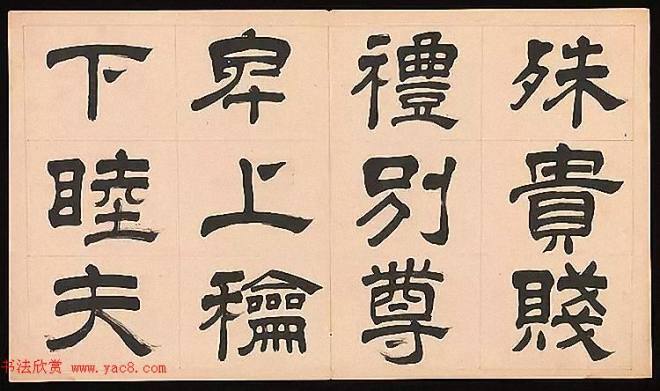 殊貴賤
禮別尊
卑上龢
下睦夫
书法欣赏 www.yac8.com